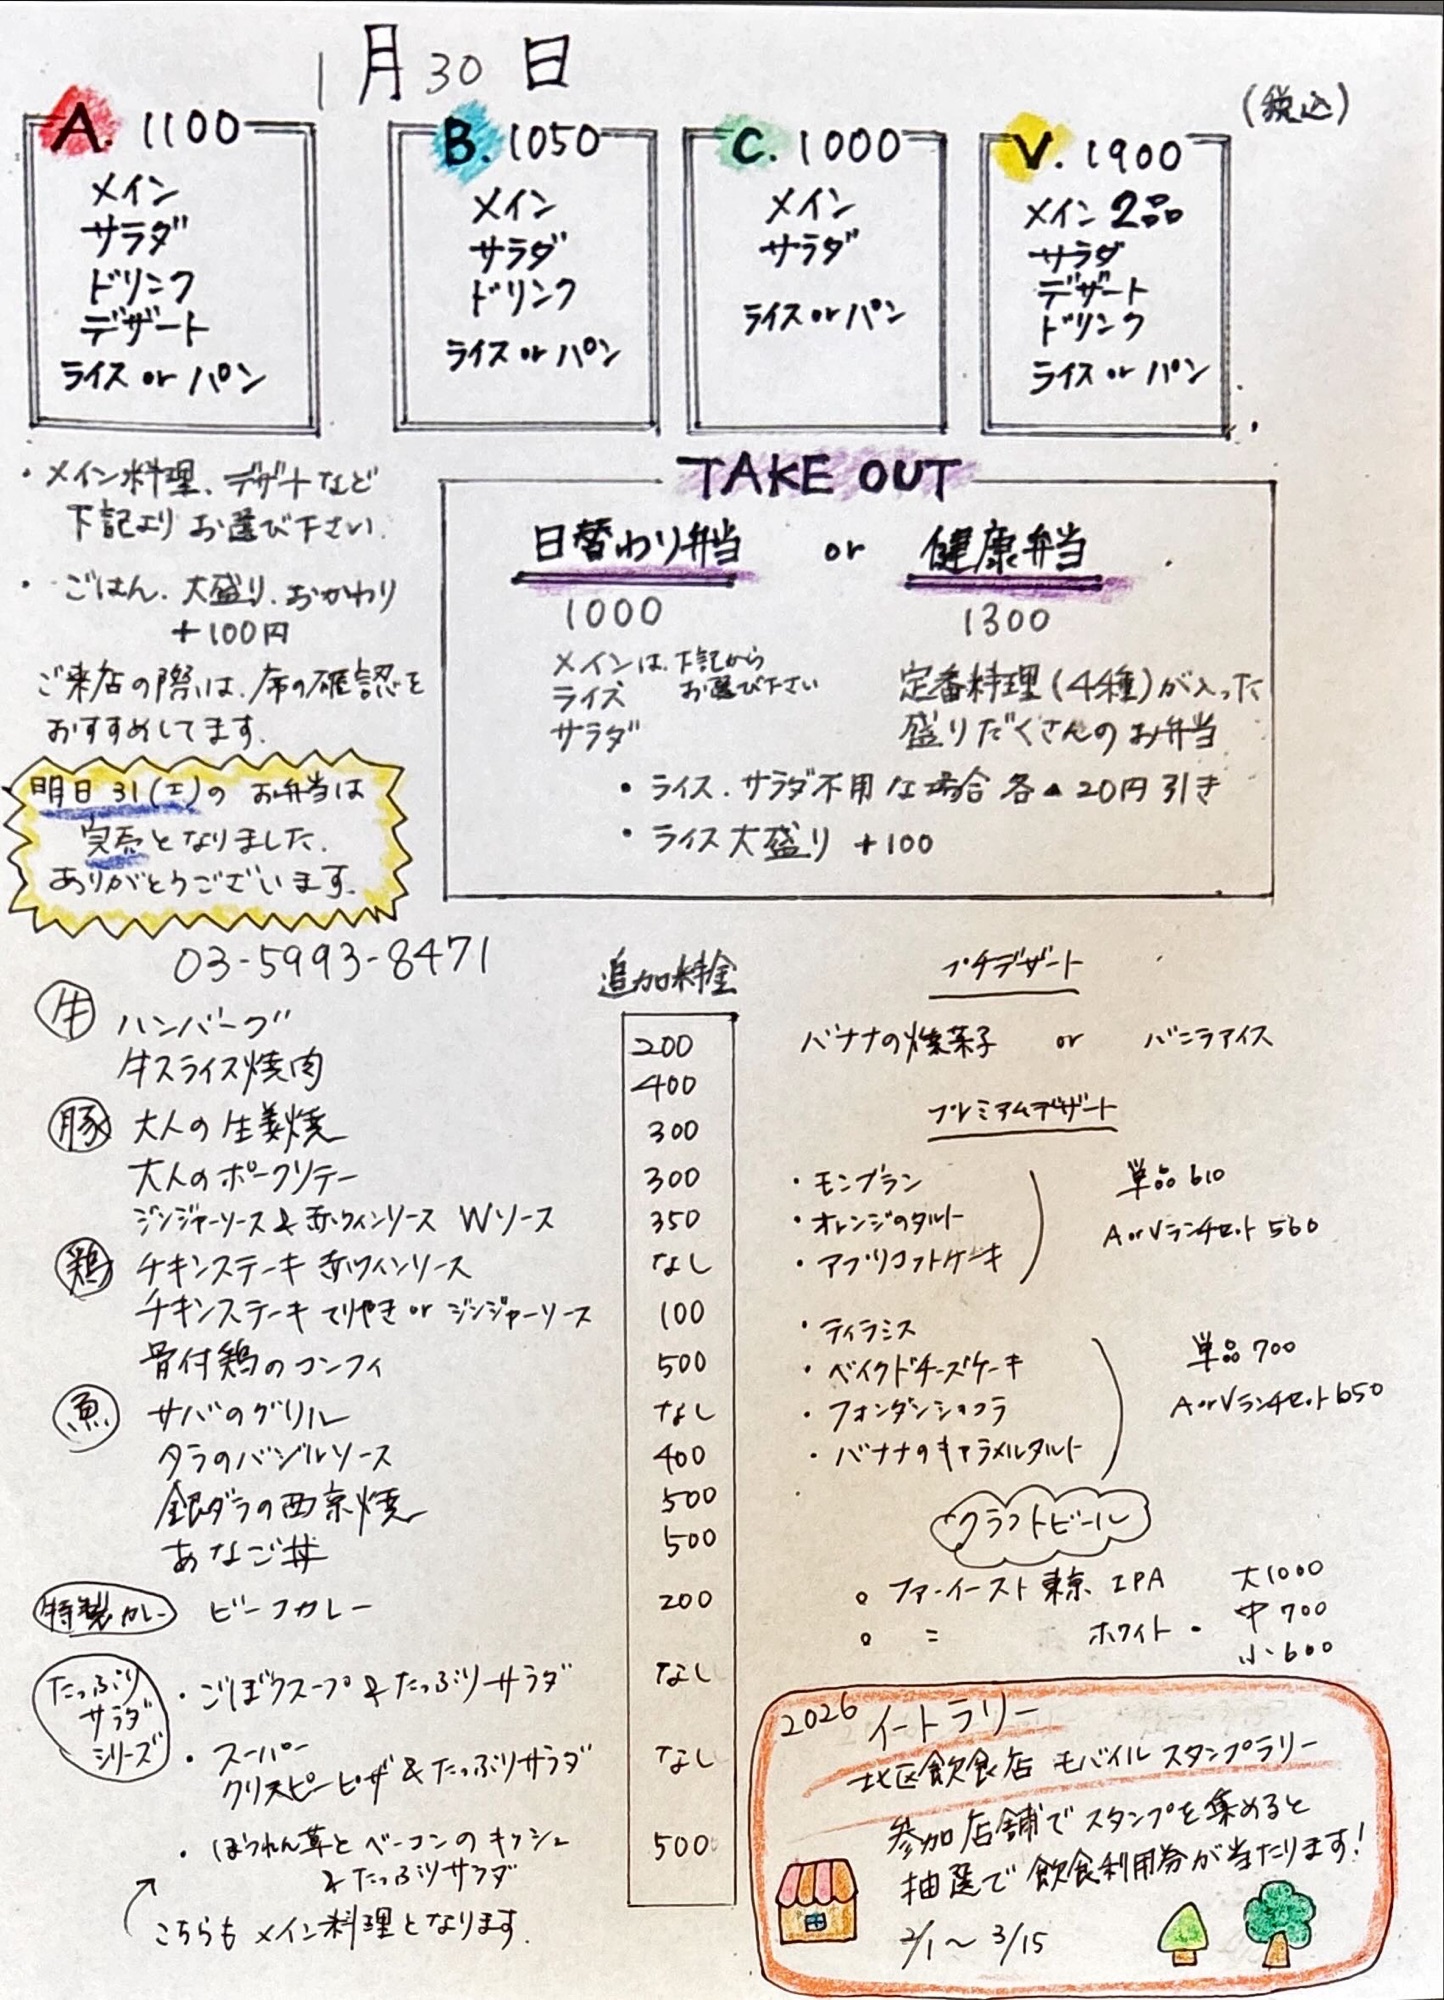 1月30日
(税込)
A. 1100
メイン
サラダ
ドリンク
デザート
ライス or パン
B. 1050
メイン
サラダ
ドリンク
ライス or パン
C. 1000
メイン
サラダ
ライス or パン
V. 1900
メイン 2品
サラダ
デザート
ドリンク
ライス or パン
・メイン料理、デザートなど
下記より お選び下さい.
・ごはん、大盛り、おかわり
+100円
ご来店の際は、席の確認を
おすすめしてます.
明日 31(土)の お弁当は
完売となりました.
ありがとうございます.
TAKE OUT
日替わり弁当 or 健康弁当
1000
メインは、下記から
お選び下さい
ライス
サラダ
1300
定番料理(4種)が入った
盛りだくさんの お弁当
・ライス.サラダ不用な場合 各▲20円引き
・ライス大盛り +100
03-5993-8471
追加料金
牛 ハンバーグ 200
牛スライス焼肉 400
豚 大人の生姜焼 300
大人のポークソテー 300
ジンジャーソース&赤ワインソース Wソース 350
鶏 チキンステーキ 赤ワインソース なし
チキンステーキ てりやき or ジンジャーソース 100
骨付鶏のコンフィ 500
魚 サバのグリル なし
タラのバジルソース 400
銀ダラの西京焼 500
あなご丼 500
特製カレー ビーフカレー 200
たっぷり
サラダ
シリーズ
・ごぼうスープ&たっぷりサラダ なし
・スーパー
クリスピーピザ&たっぷりサラダ なし
・ほうれん草とベーコンのキッシュ
&たっぷりサラダ 500
こちらも メイン料理となります.
プチデザート
バナナの焼菓子 or バニラアイス
プレミアムデザート
・モンブラン
・オレンジのタルト
・アプリコットケーキ
単品 610
AorVランチセット 560
・ティラミス
・ベイクドチーズケーキ
・フォンダンショコラ
・バナナのキャラメルタルト
単品 700
AorVランチセット 650
クラフトビール
。ファーイースト東京 IPA
。 〃 ホワイト.
大1000
中 700
小 600
2026 イートラリー
北区飲食店 モバイルスタンプラリー
参加店舗でスタンプを集めると
抽選で飲食利用券が当たります!
2/1~3/15